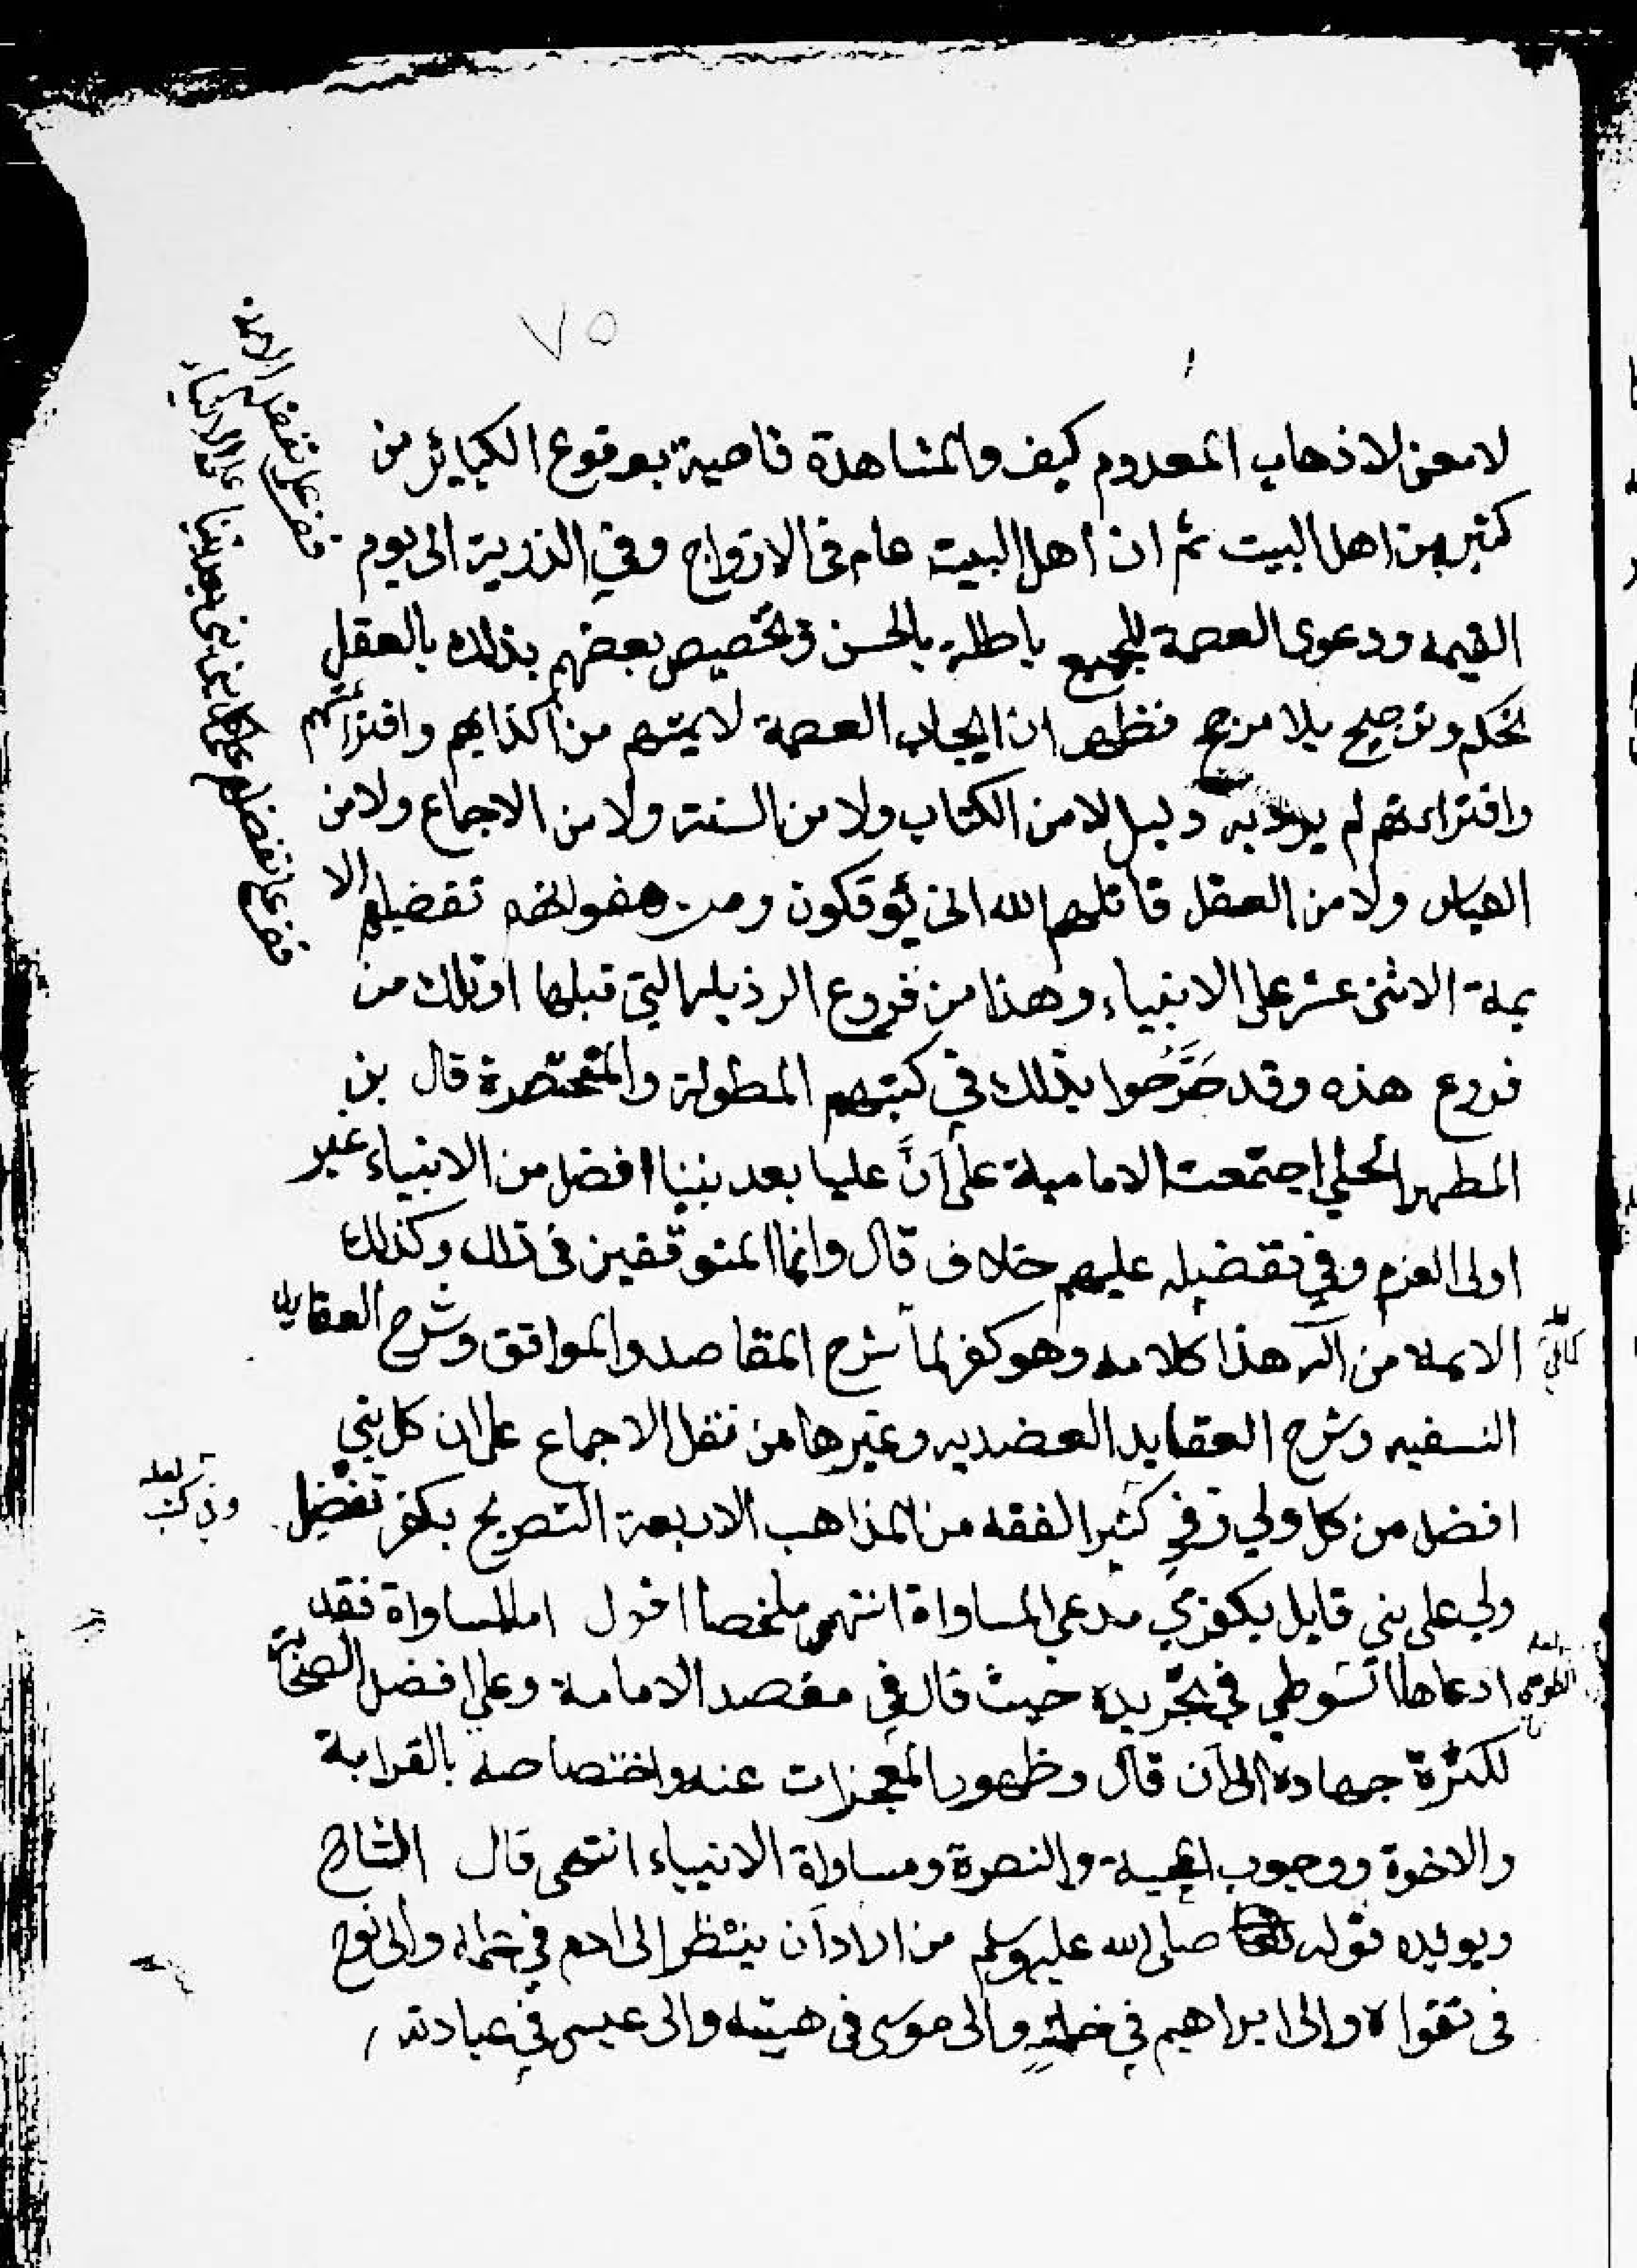 ٧٥
لا معنى لاذهاب المعدوم كيف والمشاهدة قاصية بوقوع الكبائر من
كثير من اهل البيت ثم ان اهل البيت عام فى الازواج وفي الذرية الى يوم
القيمه ودعوى العصمة للجميع باطله بالحسن وتخصيص بعضهم بذلك بالعقل
تحكم وترجيح بلا مرجح فظهر ان ايجاب العصمة لايمتهم من اكذابهم وافترائهم
وافترائهم لم يرد به دليل لا من الكتاب ولا من السنة ولا من الاجماع ولا من
القياس ولا من العقل قاتلهم الله انى يؤفكون ومن هفواتهم تفضيلهم الا
يمة الاثنى عشر على الانبياء وهذا من فروع الرذيله التي قبلها او تلك من
فروع هذه وقد صَرَّحُوا بذلك في كتبهم المطولة والمختصرة قال بن
المطهر الحلي اجتمعت الامامية على اَنَّ عليا بعد نبينا افضل من الانبياء غير
اولى العزم وفي تفضيله عليهم خلاف قال وانا المتوقفين فى ذلك وكذلك
الايمة من آله هذا كلامه وهو كفر لما شرح المقاصد والمواقق وشرح العقايد
النسفيه وشرح العقايد العضديه وغيرها من نقل الاجماع على ان كل نبي
افضل من كل ولي وفي كثير الفقه من المذاهب الاربعة التصريح بكفر تفضيل
ولي على نبي قايل بكفرى مدعى المساواة انتهى ملخصا اقول اما المساواة فقد
ادعاها السوطي في تجريده حيث قال في مقصد الامامة وعلى افضل الصحابة
لكثرة جهاده الى ان قال وظهور المعجزات عنه واختصاصه بالقرابة
والاخوة ووجوب المحبة والنصرة ومساواة الانبياء انتهى قال الشارح
ويويده قوله صلى الله عليه وسلم من اراد اَن ينظر الى ادم في علمه والى نوح
فى تقواه والى ابراهيم في خلته والى موسى فى هيبته والى عيسى في عبادته
قف على تفضيل الايمة
على الانبياء
قف على تفضيلهم عليا
لعله
وفي كتب
لعله
الطوسي